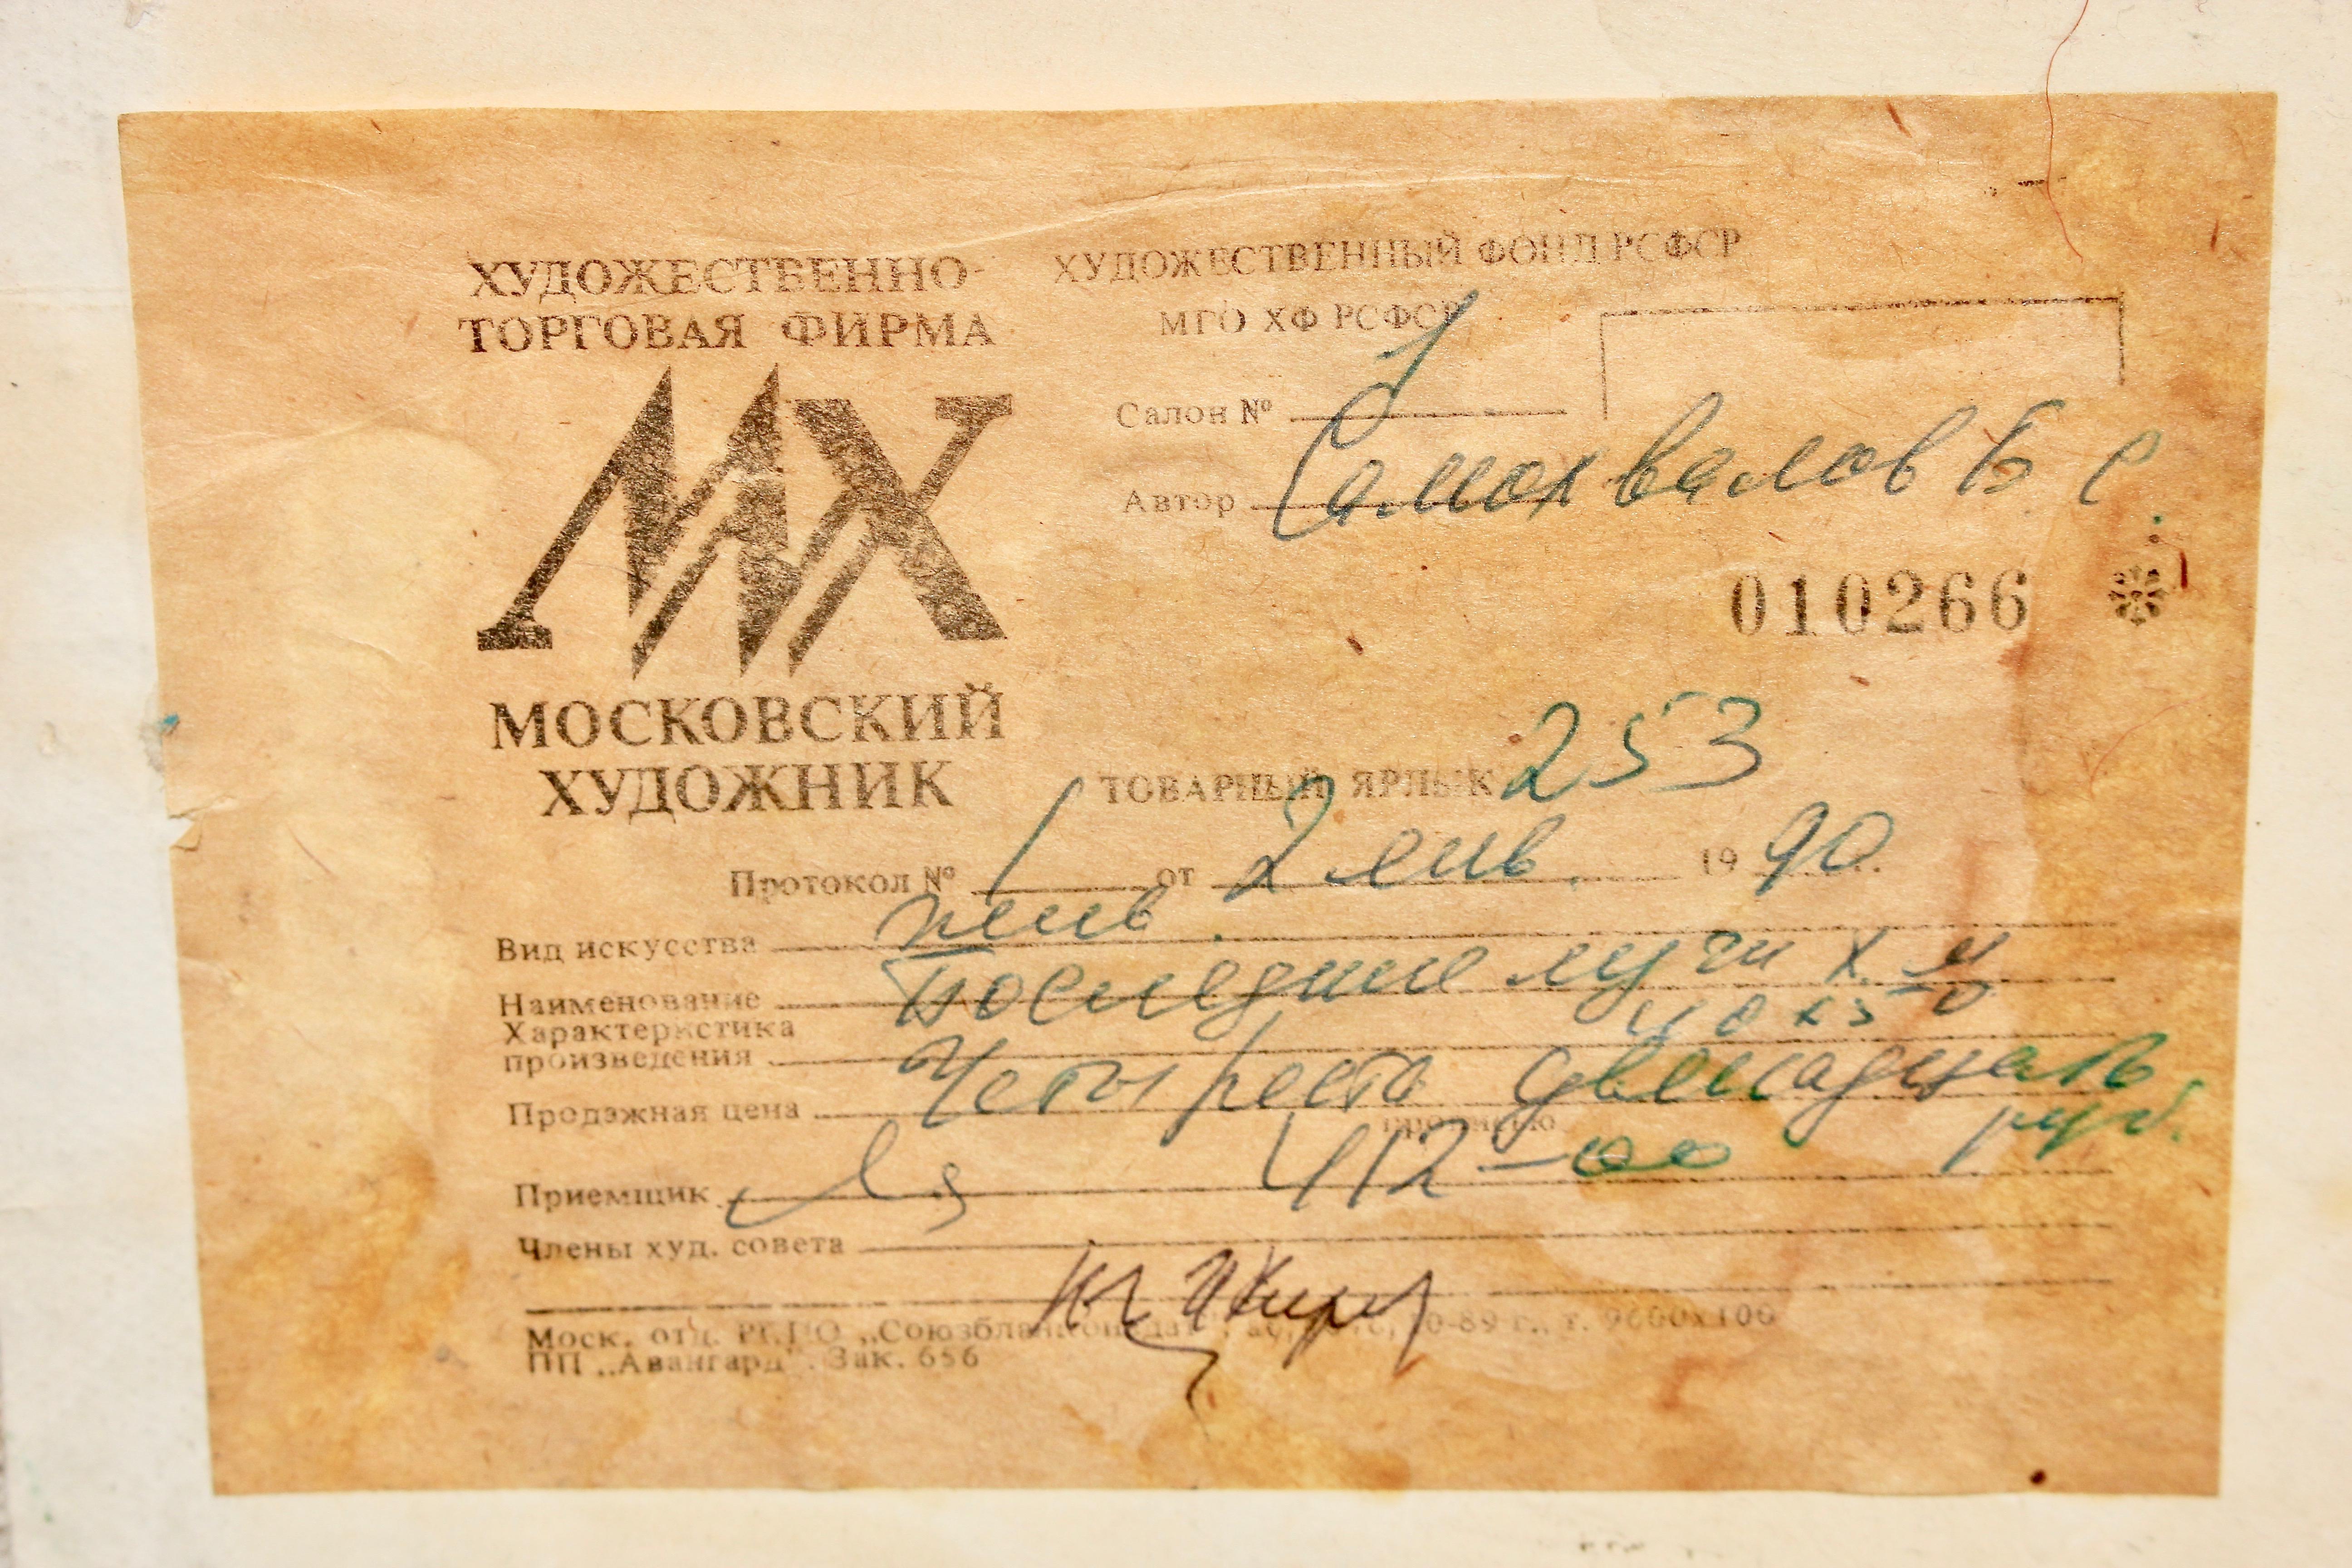 ХУДОЖЕСТВЕННО-
ТОРГОВАЯ ФИРМА
МХ
МОСКОВСКИЙ
ХУДОЖНИК
ХУДОЖЕСТВЕННЫЙ ФОНД РСФСР
МГО ХФ РСФСР
Салон № 1
Автор Самохвалов Б С
010266
ТОВАРНЫЙ ЯРЛЫК 253
Протокол № 1 от 2 янв. 1990.
Вид искусства
Наименование Последние лучи х. м
Характеристика 40х50
произведения
Продажная цена Четыреста двенадцать
прописью руб.
Приемщик 412-00
Члены худ. совета
Моск. отд. 0-89 г., т. 9600х100
ПП „Авангард". Зак. 656